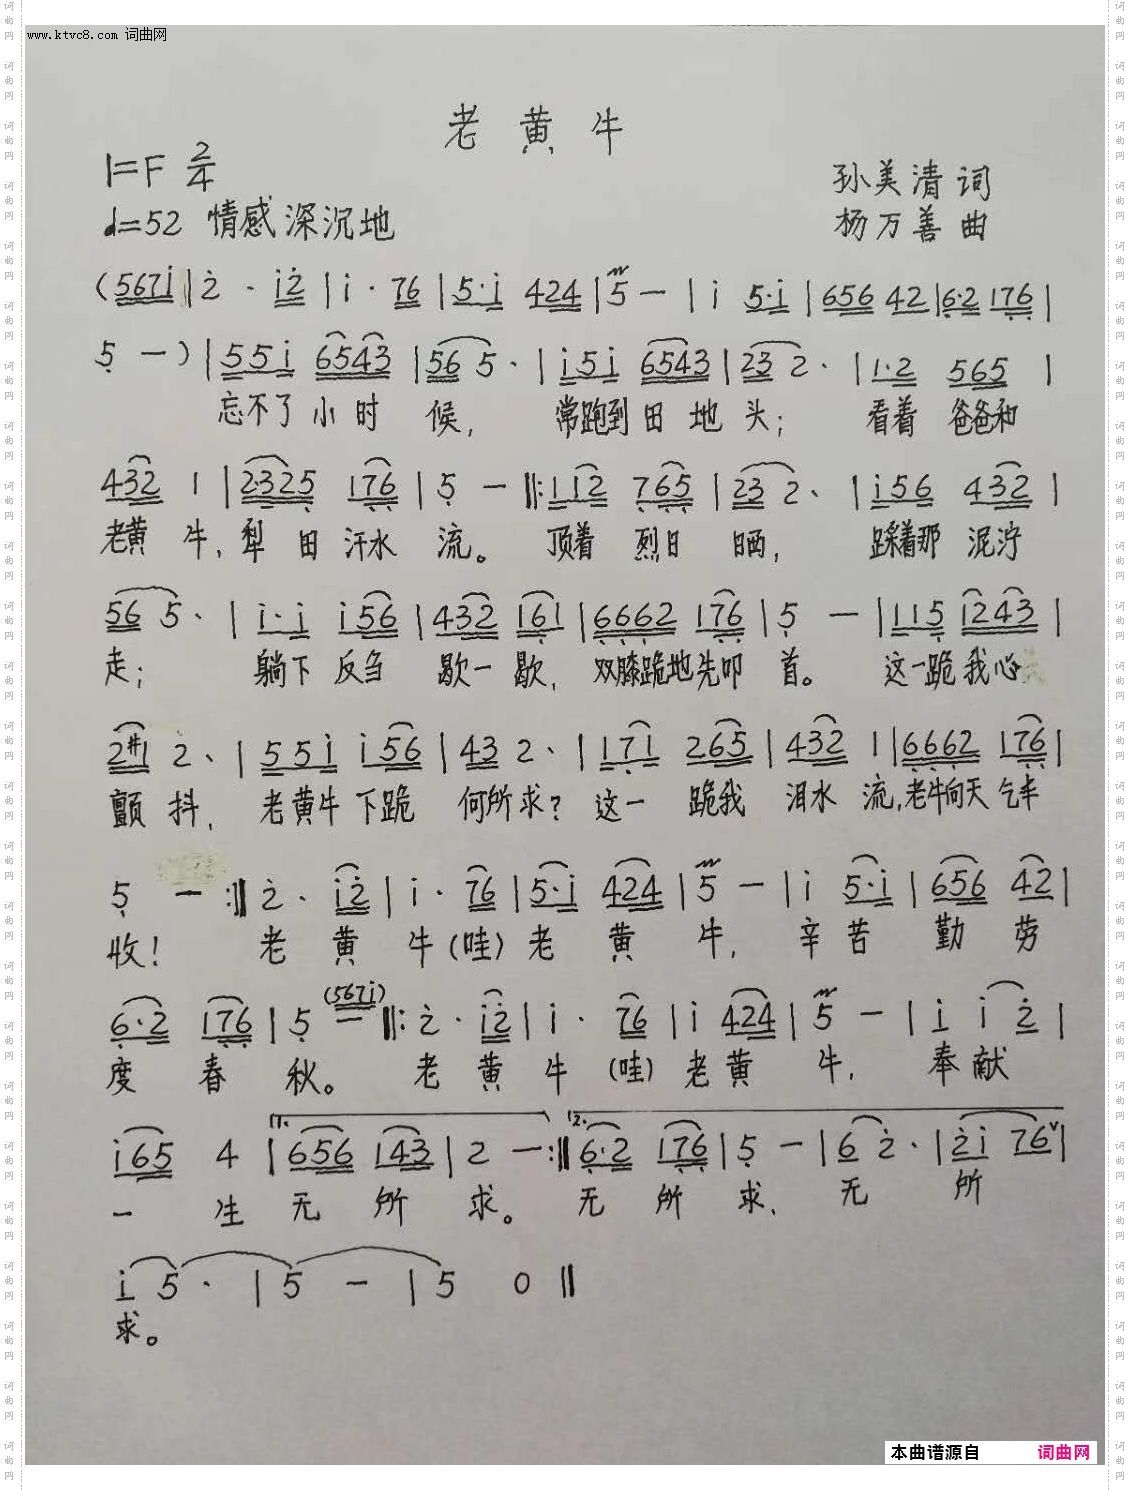 www.ktvc8.com 词曲网
老黄牛
1=F 2/4
孙美清 词
♩=52 情感深沉地
杨万善 曲
(567i||2· i2|i· 76|5·i 424|5 — |i 5·i|656 42|6·2 176|
5 —)|55i 6543|56 5·|i5i 6543|23 2·|1·2 565|
忘不了小时候, 常跑到田地头; 看着爸爸和
432 1|2325 176|5 — ||:112 765|23 2·|i56 432|
老黄牛,犁田汗水流。 顶着烈日晒, 踩着那泥泞
56 5·|i·i i56|432 161|6662 176|5 — |115 1243|
走; 躺下反刍歇一歇, 双膝跪地先叩首。 这一跪我心
2#1 2·|55i i56|43 2·|171 265|432 1|6662 176|
颤抖, 老黄牛下跪何所求? 这一跪我泪水流,老牛向天乞丰
5 — :||2· i2|i· 76|5·i 424|5 — |i 5·i|656 42|
收! 老黄牛(哇)老黄牛, 辛苦勤劳
6·2 176|5 (567i) — ||:2· i2|i· 76|i 424|5 — |i i 2|
度春秋。 老黄牛(哇)老黄牛, 奉献
i65 4|1. 656 143|2 — :||2. 6·2 176|5 — |6 2·|2i 76ᵛ|
一生无所求。 无所求, 无所
i 5·|5 — |5 0||
求。
本曲谱源自 词曲网